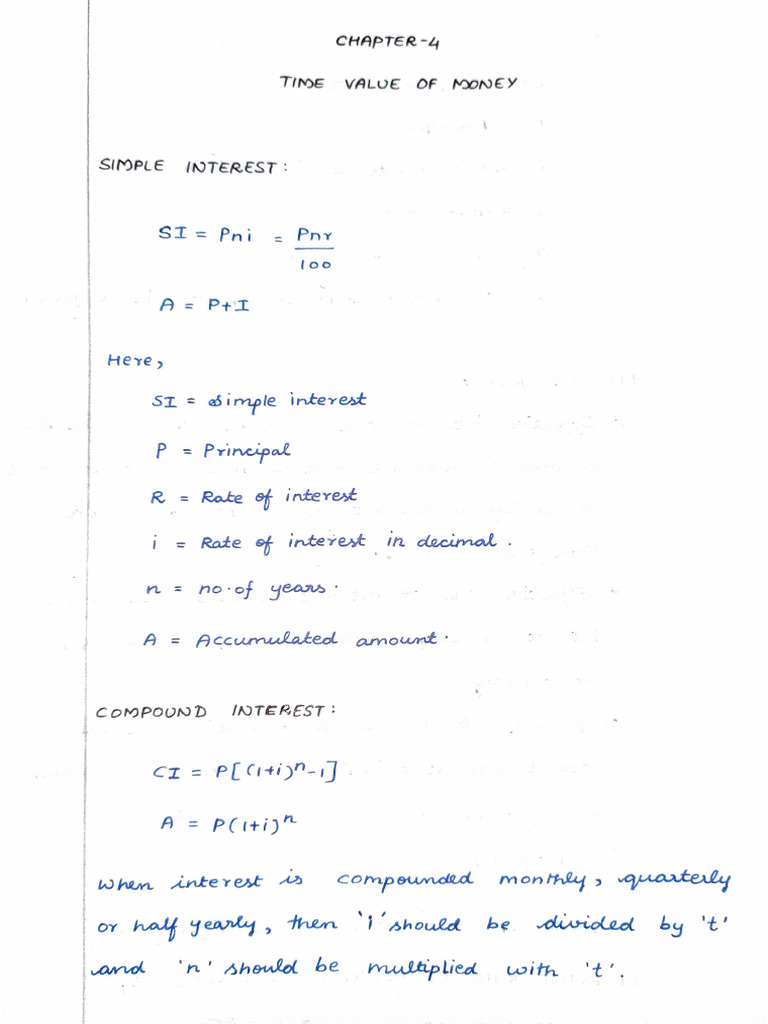 CHAPTER-4
TIME VALUE OF MONEY
SIMPLE INTEREST:
SI = Pni = Pnr
100
A = P+I
Here,
SI = simple interest
P = Principal
R = Rate of interest
i = Rate of interest in decimal.
n = no.of years.
A = Accumulated amount.
COMPOUND INTEREST:
CI = P[(1+i)ⁿ-1]
A = P(1+i)ⁿ
When interest is compounded monthly, quarterly
or half yearly, then 'i' should be divided by 't'
and 'n' should be multiplied with 't'.